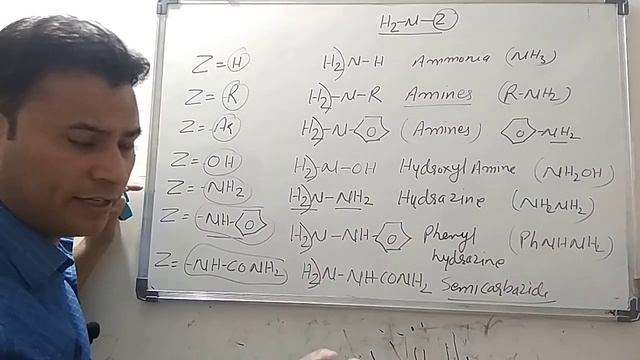 H2-N-Z
Z = H H2)N-H Ammonia (NH3)
Z = R H2)-N-R Amines (R-NH2)
Z = -Ar H2)-N- (Amines) -NH2
Z = OH H2)-N-OH Hydroxyl Amine (NH2OH)
Z = -NH2 H2)N-NH2 Hydrazine (NH2NH2)
Z = -NH- H2)N-NH- Phenyl (PhNHNH2)
hydrazine
Z = -NH-CONH2 H2)N-NHCONH2 Semicarbazide